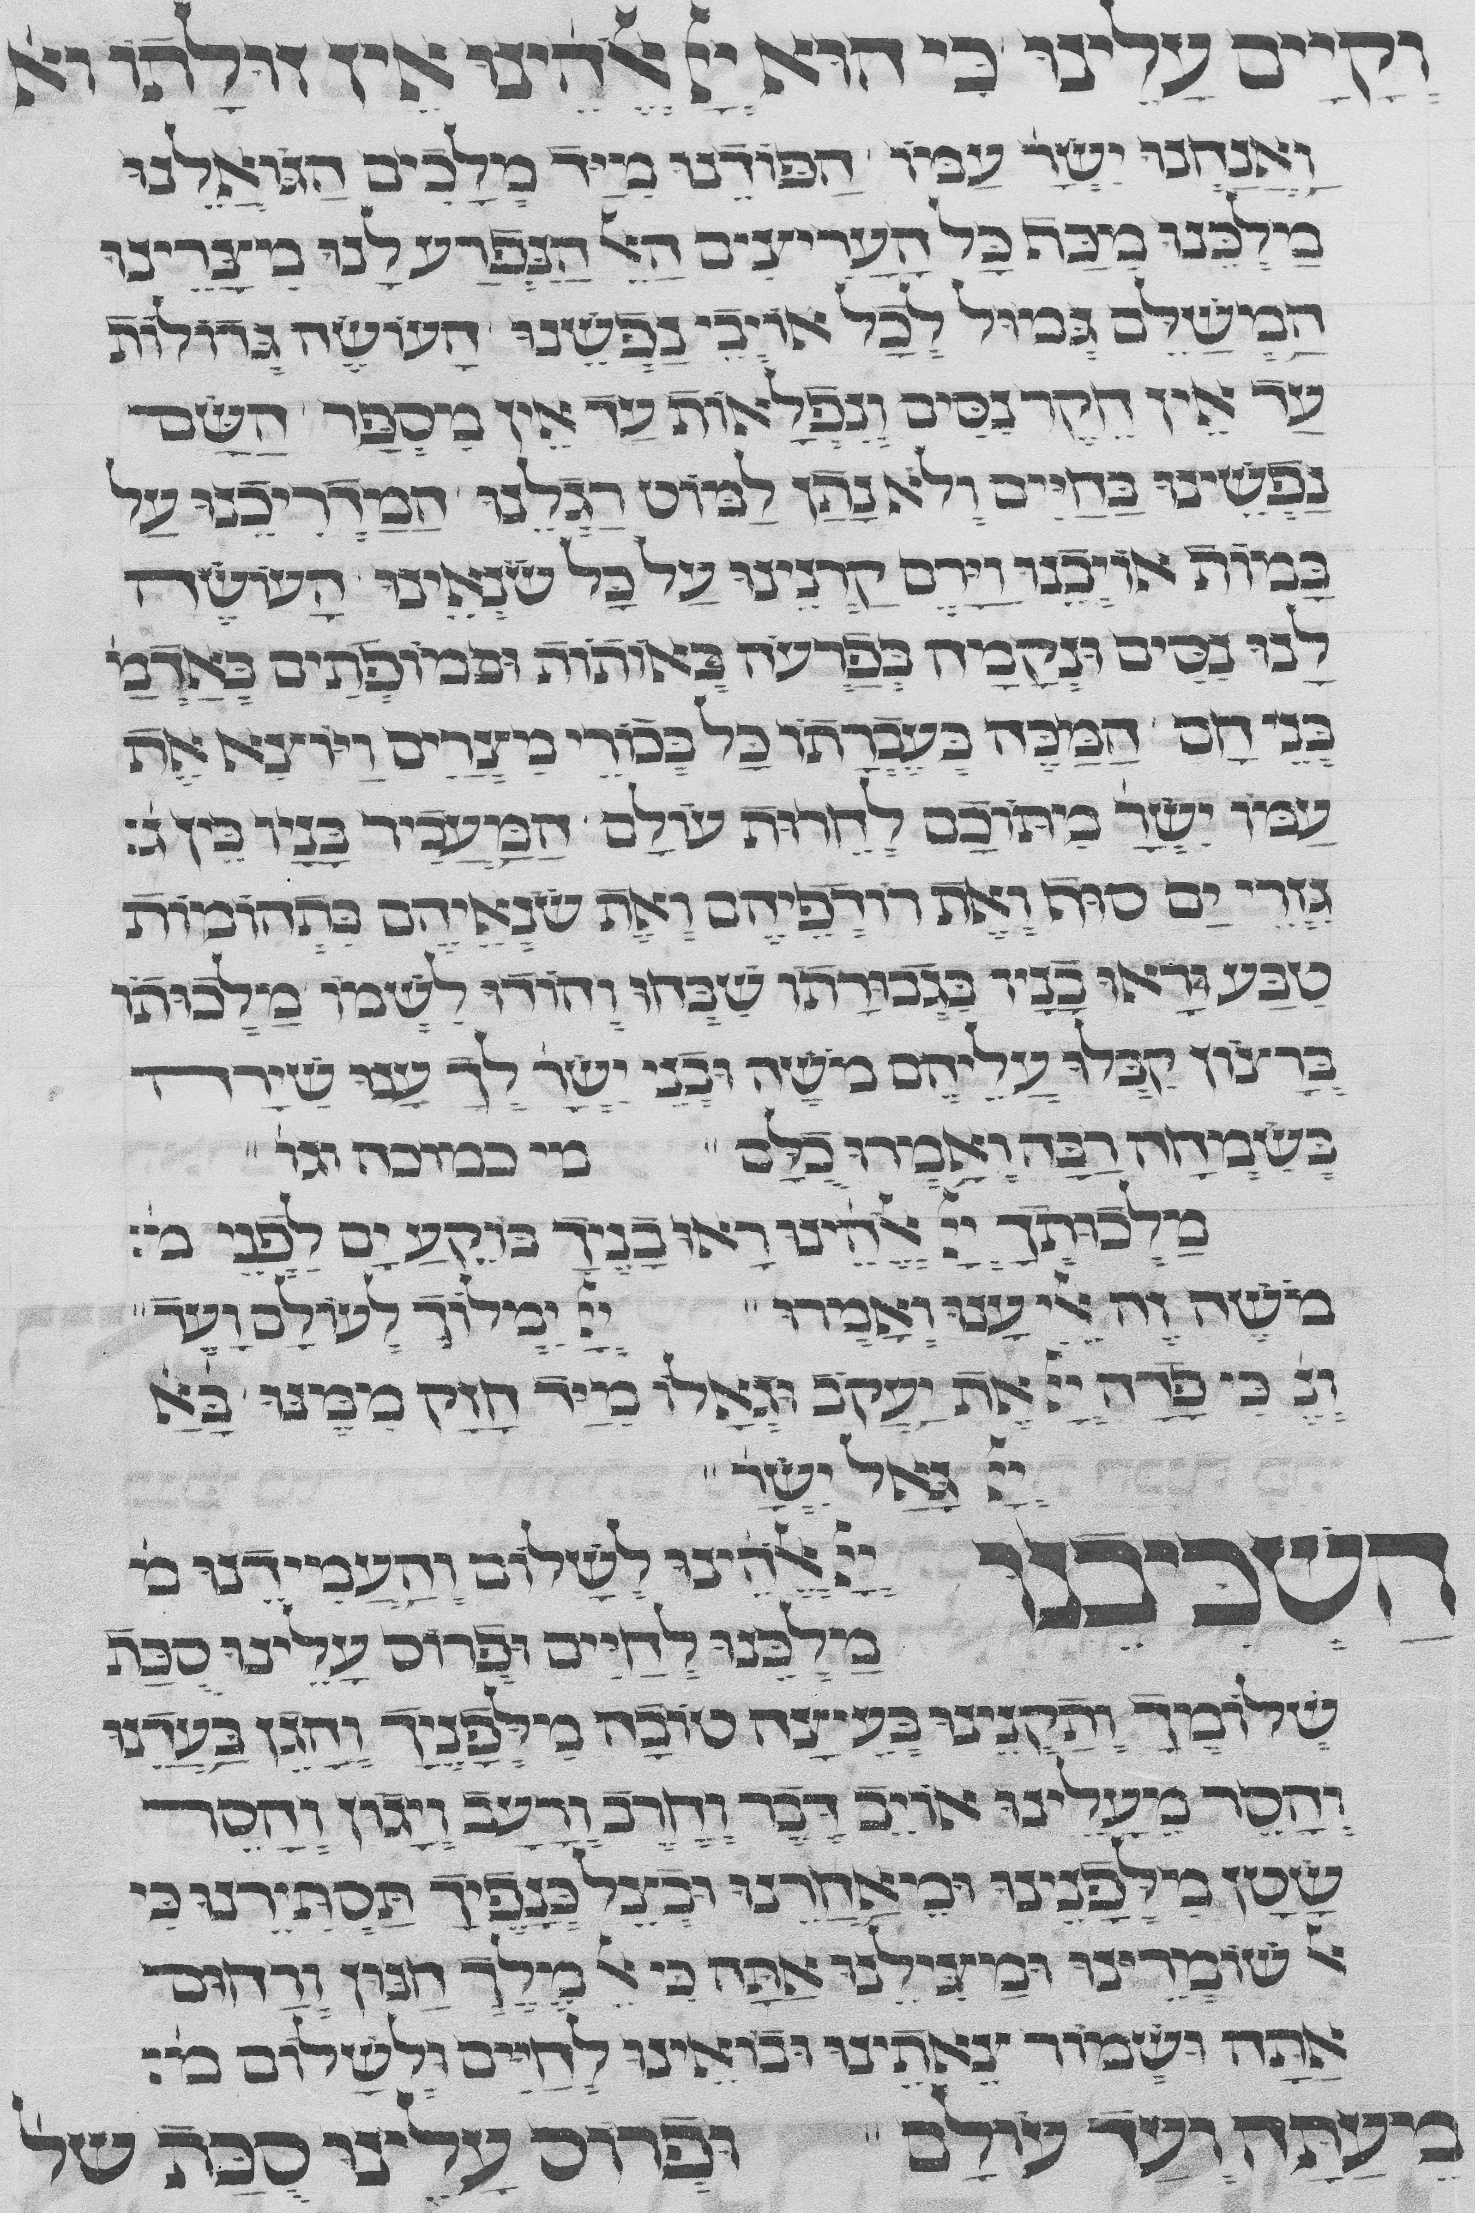 וקיים עלינו כי הוא ייי אלהינו אין זולתו וא
ואנחנו ישר׳ עמו · הפודנו מיד מלכים הגואלנו
מלכנו מכף כל העריצים האל הנפרע לנו מצרינו
המשלם גמול לכל אויבי נפשנו · העושה גדולות
עד אין חקר נסים ונפלאות עד אין מספר · השם
נפשינו בחיים ולא נתן למוט רגלנו · המדריכנו על
במות אויבנו וירם קרנינו על כל שנאינו · העושה
לנו נסים ונקמה בפרעה באותות ובמופתים באדמ׳
בני חם · המכה בעברתו כל בכורי מצרים ויוצא את
עמו ישר׳ מתוכם לחרות עולם · המעביר בניו בין ג׳:
גזרי ים סוף ואת רודפיהם ואת שנאיהם בתהומות
טבע וראו בניו בגבורתו שבחו והודו לשמו מלכותו
ברצון קבלו עליהם משה ובני ישר׳ לך ענו שירה
בשמחה רבה ואמרו כלם״ מי כמוכה וגו׳״
מלכותך ייי אלהינו ראו בניך בוקע ים לפני מ׳:
משה זה אלי ענו ואמרו״ ייי ימלוך לעולם ועד״
ונ׳ כי פדה ייי את יעקב וגאלו מיד חזק ממנו · בא׳
ייי גאל ישר׳״
השכיבנו ייי אלהינו לשלום והעמידנו מ׳
מלכנו לחיים ופרוס עלינו סכת
שלומך ותקנינו בעיצה טובה מלפניך והגן בעדנו
והסר מעלינו אויב דבר וחרב ורעב ויגון והסר
שטן מלפנינו ומאחרנו ובצל כנפיך תסתירנו כי
אל שומרינו ומצילנו אתה כי אל מלך חנון ורחום
אתה ושמור צאתינו ובואינו לחיים ולשלום מ׳:
מיעתה ועד עולם״ ופרוס עלינו סכת של׳